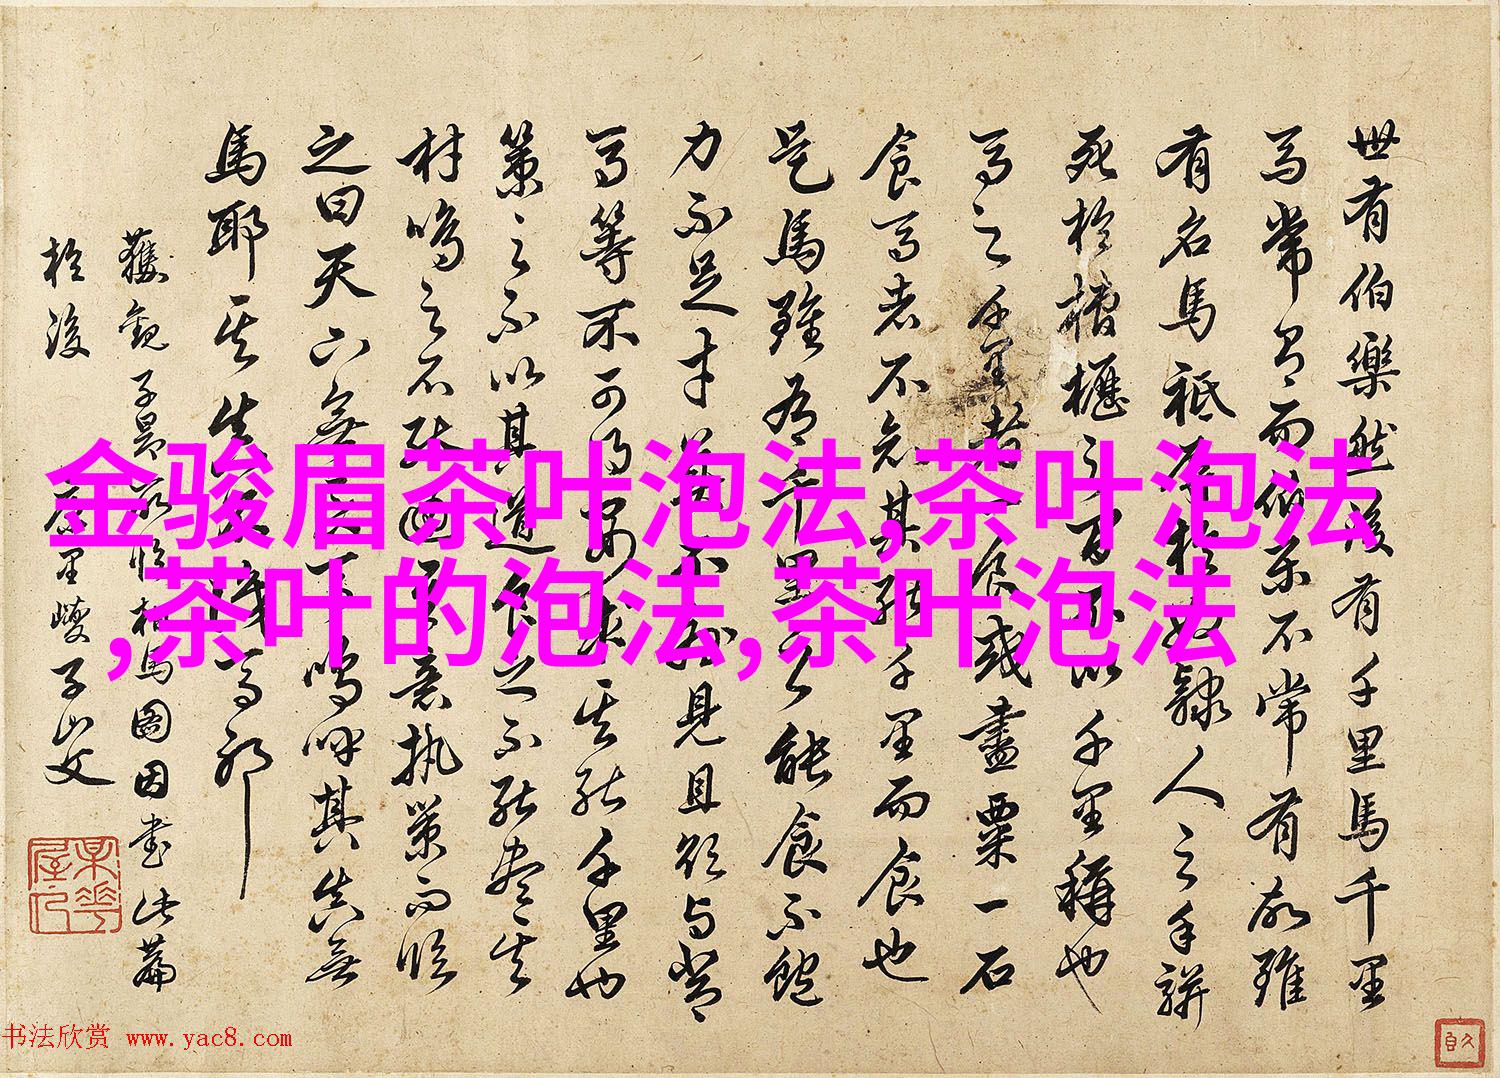 世有伯樂然後有千里馬千里
馬常有而伯樂不常有故雖
有名馬祇辱於奴隸人之手駢
死於槽櫪之間不以千里稱也
馬之千里者一食或盡粟一石
食馬者不知其能千里而食也
是馬雖有千里之能食不飽
力不足才美不外見且欲與常
馬等不可得安求其能千里也
策之不以其道食之不能盡其
材鳴之不能通其意執策而臨
之曰天下無馬嗚呼其真無
馬耶其真不識馬耶
獲觀子昂所臨相馬圖因書此篇
於後 康里巎子山父
金骏眉茶叶泡法,茶叶泡法
,茶叶的泡法,茶叶泡法
书法欣赏 www.yac8.com